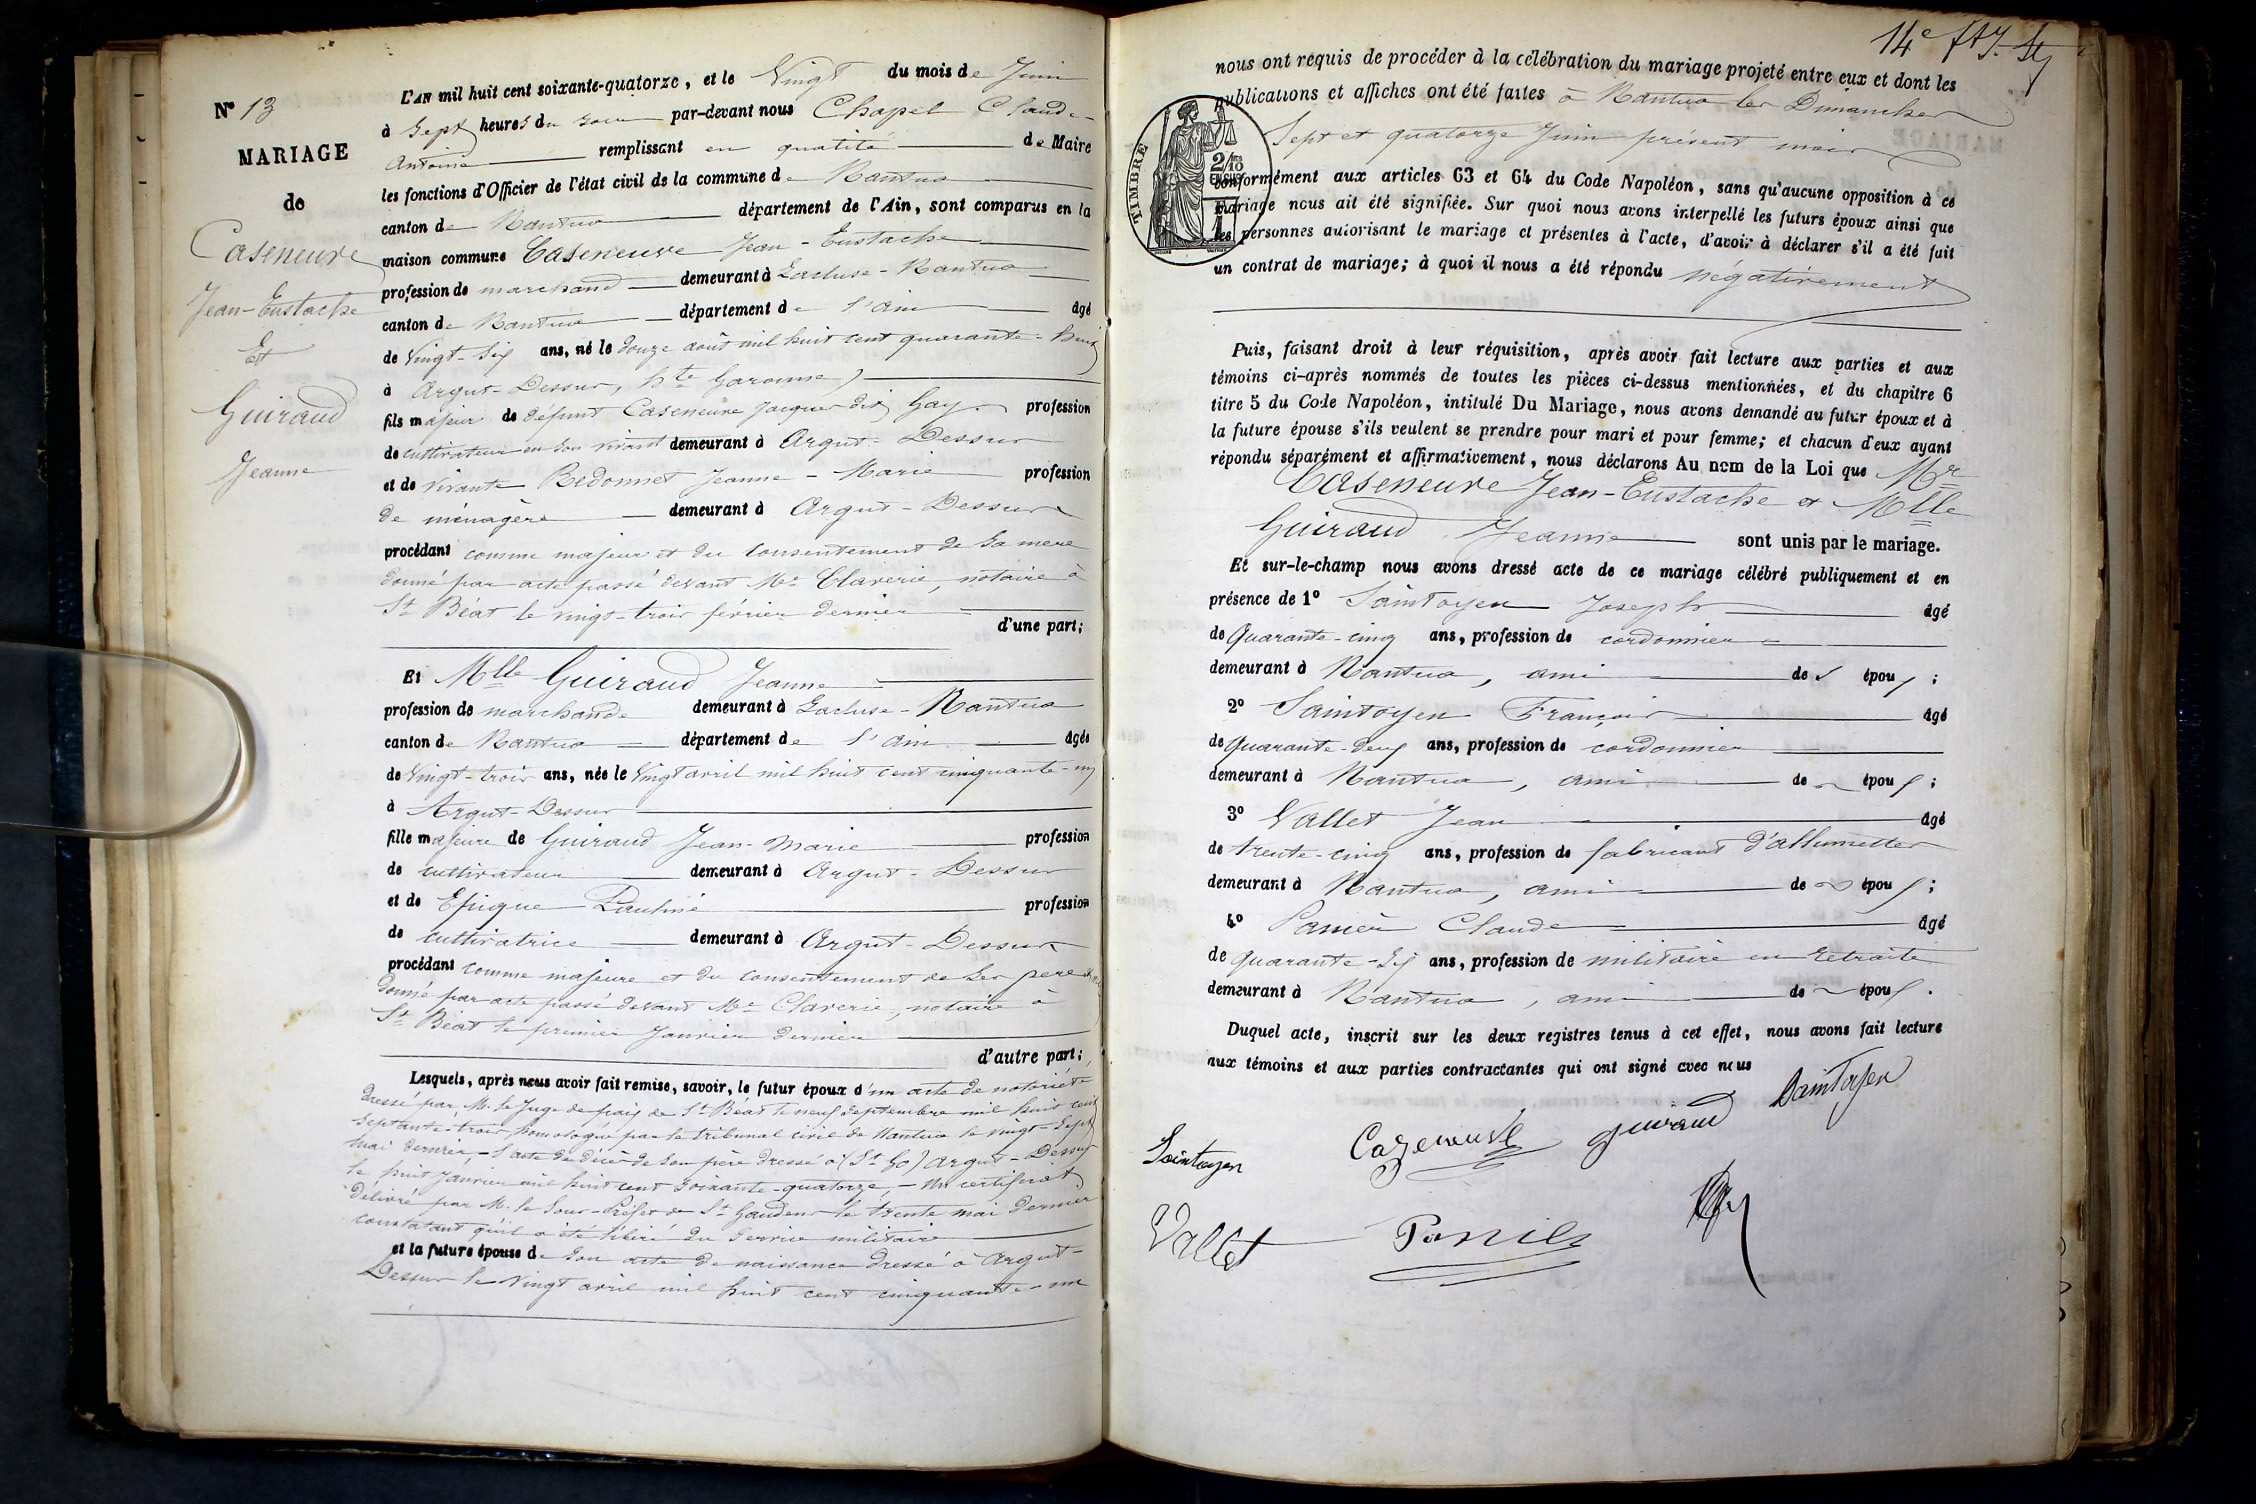 N° 13
MARIAGE
de
Caseneuve
Jean-Eustache
Et
Guiraud
Jeanne
L'AN mil huit cent soixante-quatorze, et le Vingt du mois de Juin
à Sept heures du soir par-devant nous Chapel Claude-
Antoine remplissant en qualité de Maire
les fonctions d'Officier de l'état civil de la commune de Nantua
canton de Nantua département de l'Ain, sont comparus en la
maison commune Caseneuve Jean-Eustache
profession de marchand demeurant à Lacluse-Nantua
canton de Nantua département de l'Ain âgé
de Vingt-Six ans, né le Douze août mil huit cent quarante-huit
à Argut-Dessus, hte Garonne)
fils majeur de défunt Caseneuve Jacques dit Gay profession
de cultivateur en son vivant demeurant à Argut-Dessus
et de vivante Redonnet Jeanne-Marie profession
de ménagère demeurant à Argut-Dessus
procédant comme majeur et du consentement de sa mère
donné par acte passé devant Me Claverie, notaire à
St Béat le vingt-trois février dernier
d'une part;
Et Mlle Guiraud Jeanne
profession de marchande demeurant à Lacluse-Nantua
canton de Nantua département de l'Ain âgée
de Vingt-trois ans, née le Vingt avril mil huit cent cinquante-un
à Argut-Dessus
fille majeure de Guiraud Jean-Marie profession
de cultivateur demeurant à Argut-Dessus
et de Pauline profession
de cultivatrice demeurant à Argut-Dessus
procédant comme majeure et du consentement de ses père et mère
donné par acte passé devant Me Claverie, notaire à
St Béat le premier Janvier dernier
d'autre part;
Lesquels, après nous avoir fait remise, savoir, le futur époux d'un acte de notoriété
dressé par M. le Juge de paix de St Béat le neuf Septembre mil huit cent
septante-trois, homologué par le tribunal civil de Nantua le vingt-sept
mai dernier, - l'acte de décès de son père dressé à (St Go) Argut-Dessus
le huit Janvier mil huit cent soixante-quatorze, - Un certificat
délivré par M. le Sous-Préfet de St Gaudens le trente mai dernier
constatant qu'il a été libéré du service militaire
et la future épouse de son acte de naissance dressé à Argut-
Dessus le Vingt avril mil huit cent cinquante-un
14e
nous ont requis de procéder à la célébration du mariage projeté entre eux et dont les
publications et affiches ont été faites à Nantua les Dimanches
Sept et quatorze Juin présent mois
TIMBRE
2/10
EN SUS
conformément aux articles 63 et 64 du Code Napoléon, sans qu'aucune opposition à ce
mariage nous ait été signifiée. Sur quoi nous avons interpellé les futurs époux ainsi que
les personnes autorisant le mariage et présentes à l'acte, d'avoir à déclarer s'il a été fait
un contrat de mariage; à quoi il nous a été répondu négativement
Puis, faisant droit à leur réquisition, après avoir fait lecture aux parties et aux
témoins ci-après nommés de toutes les pièces ci-dessus mentionnées, et du chapitre 6
titre 5 du Code Napoléon, intitulé Du Mariage, nous avons demandé au futur époux et à
la future épouse s'ils veulent se prendre pour mari et pour femme; et chacun d'eux ayant
répondu séparément et affirmativement, nous déclarons Au nom de la Loi que Mr
Caseneuve Jean-Eustache et Mlle
Guiraud Jeanne sont unis par le mariage.
Et sur-le-champ nous avons dressé acte de ce mariage célébré publiquement et en
présence de 1° Saintoyen Joseph âgé
de Quarante-cinq ans, profession de cordonnier
demeurant à Nantua, ami des époux;
2° Saintoyen François âgé
de Quarante-deux ans, profession de cordonnier
demeurant à Nantua, ami des époux;
3° Vallet Jean âgé
de trente-cinq ans, profession de fabricant d'allumettes
demeurant à Nantua, ami des époux;
4° Claude âgé
de quarante-six ans, profession de militaire en retraite
demeurant à Nantua, ami des époux.
Duquel acte, inscrit sur les deux registres tenus à cet effet, nous avons fait lecture
aux témoins et aux parties contractantes qui ont signé avec nous
Saintoyen
Saintoyen Cazeneuve guiraud
Vallet